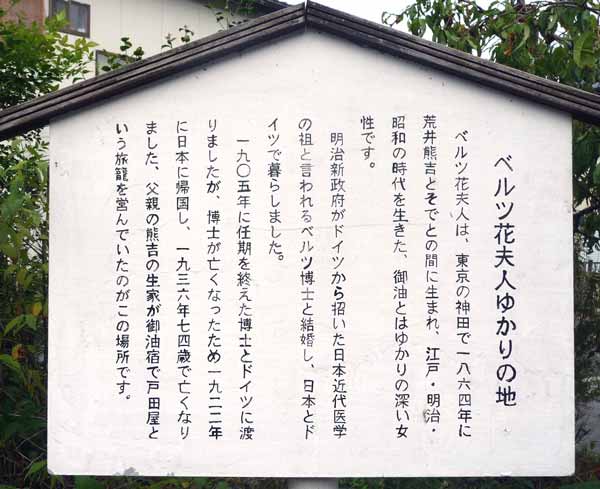 ベルツ花夫人ゆかりの地
ベルツ花夫人は、東京の神田で一八六四年に
荒井熊吉とそでとの間に生まれ、江戸・明治・
昭和の時代を生きた、御油とはゆかりの深い女
性です。
明治新政府がドイツから招いた日本近代医学
の祖と言われるベルツ博士と結婚し、日本とド
イツで暮らしました。
一九〇五年に任期を終えた博士とドイツに渡
りましたが、博士が亡くなったため一九二二年
に日本に帰国し、一九三六年七四歳で亡くなり
ました、父親の熊吉の生家が御油宿で戸田屋と
いう旅籠を営んでいたのがこの場所です。